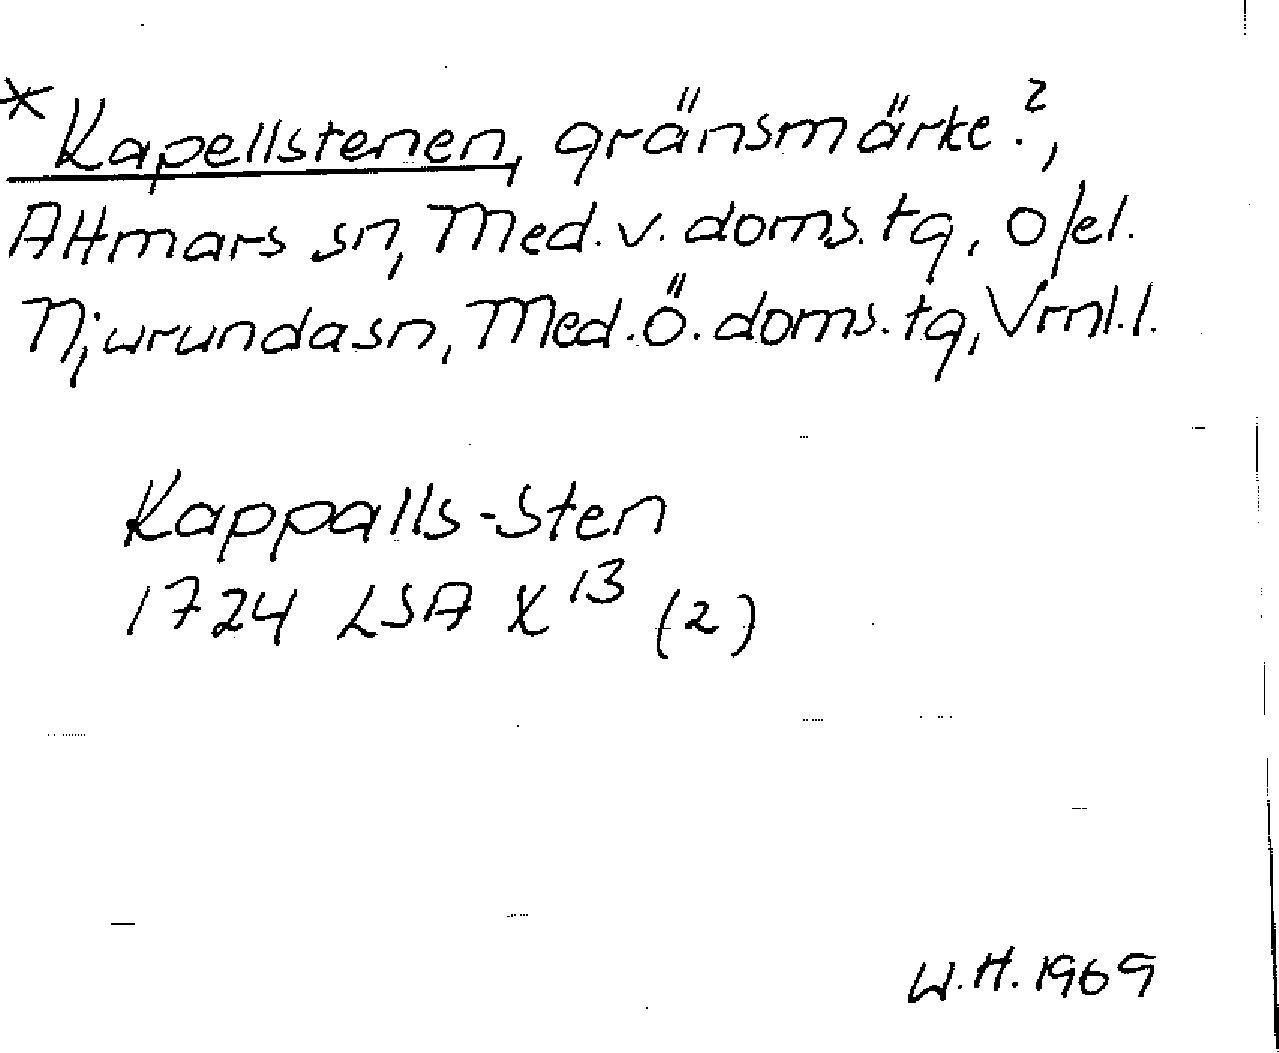 *Kapellstenen, gränsmärke?,
Attmars sn, Med. v. doms. tg, o/el.
Njurundasn, Med. ö. doms. tg, Vrnl. l.
Kappalls-Sten
1724 LSA X 13 (2)
W.H. 1969